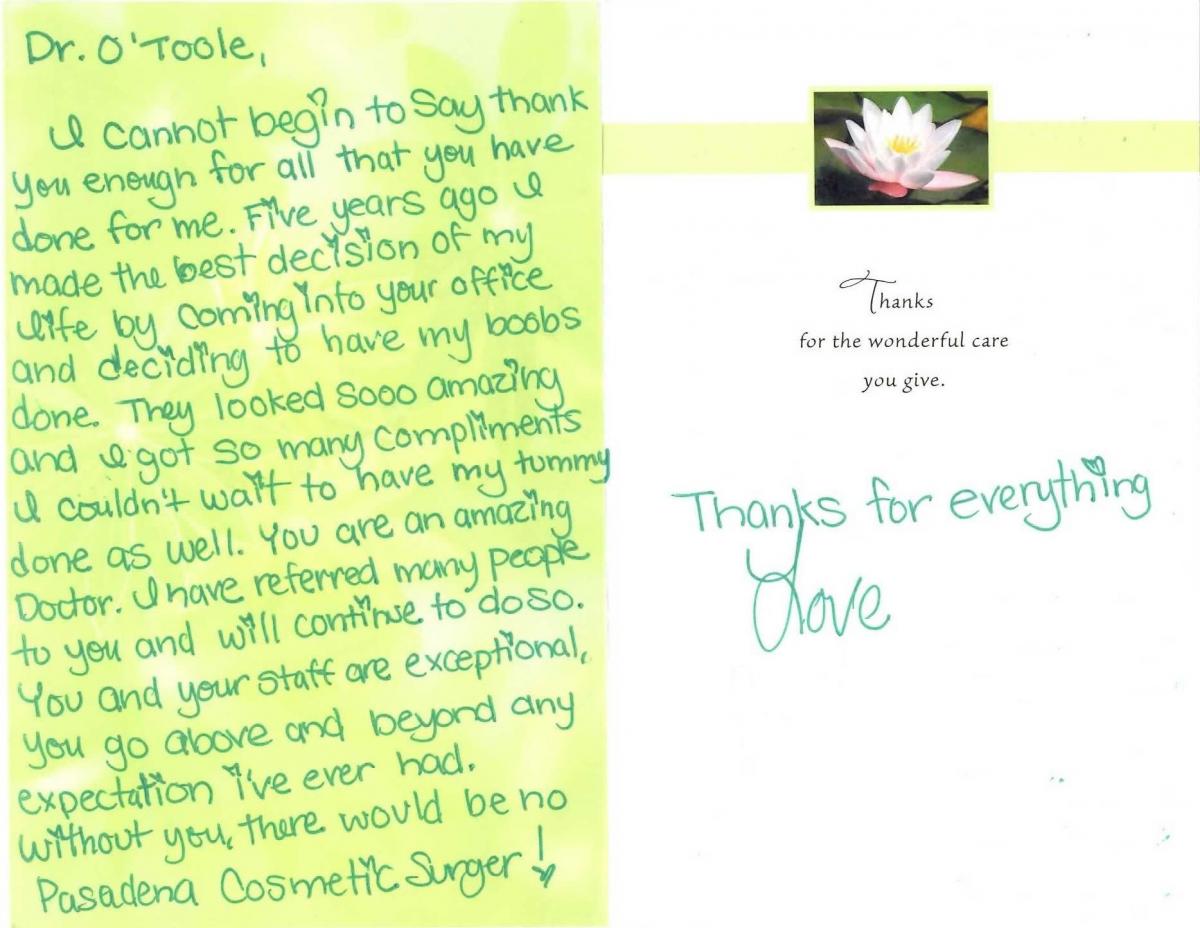 Dr. O'Toole,
I cannot begin to say thank
you enough for all that you have
done for me. Five years ago I
made the best decision of my
life by coming into your office
and deciding to have my boobs
done. They looked sooo amazing
and I got so many compliments
I couldn't wait to have my tummy
done as well. You are an amazing
Doctor. I have referred many people
to you and will continue to do so.
You and your staff are exceptional,
you go above and beyond any
expectation i've ever had.
without you, there would be no
Pasadena Cosmetic Surger!
Thanks
for the wonderful care
you give.
Thanks for everything
Love